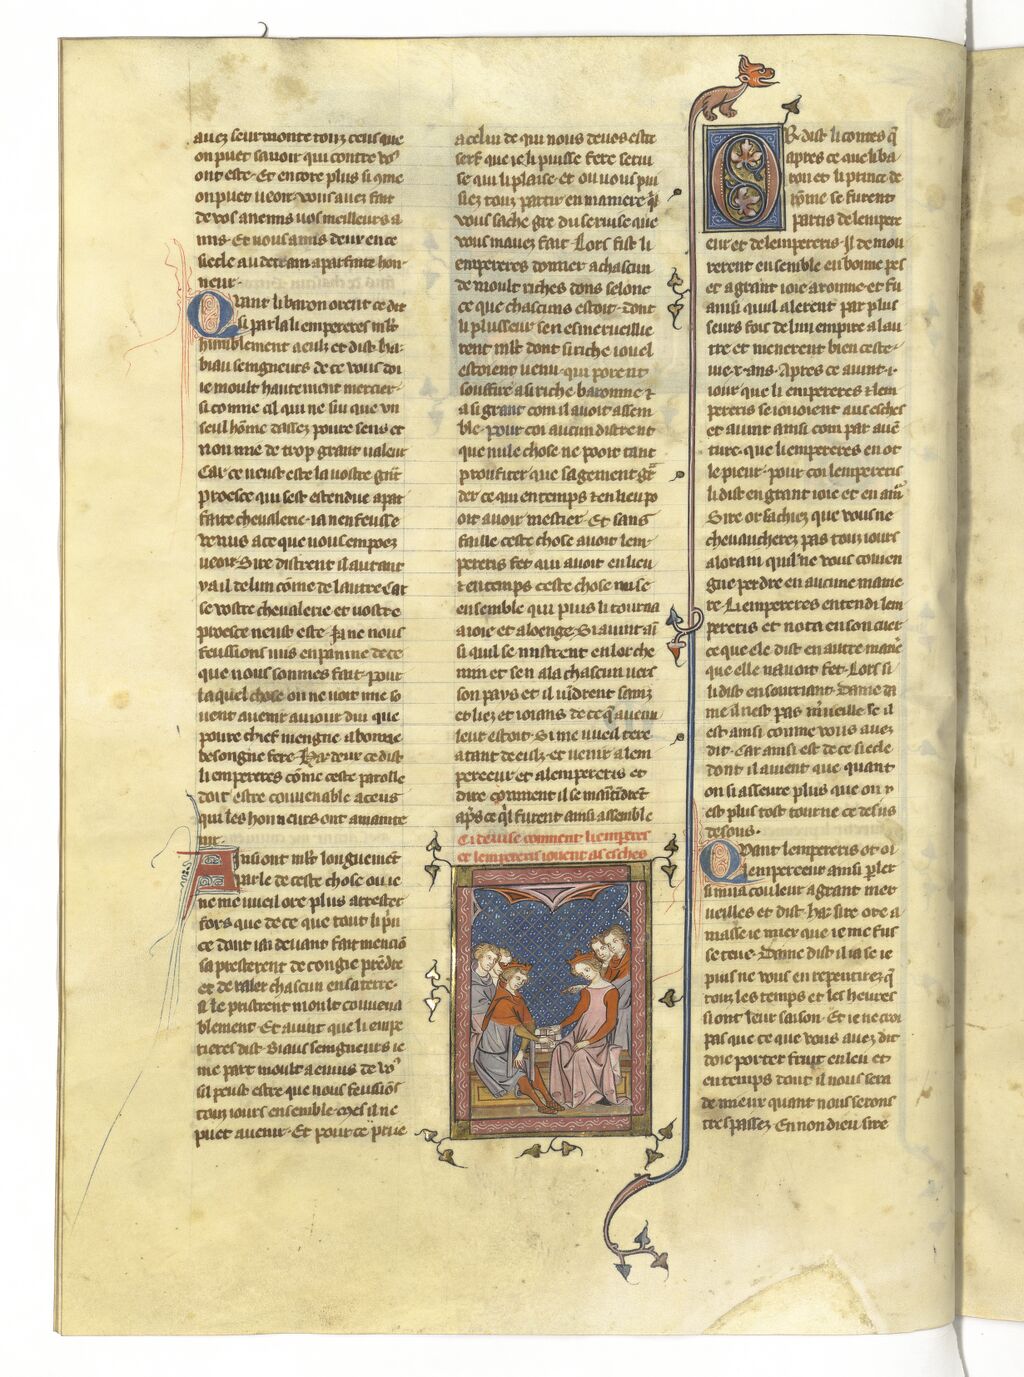 auez seurmonte touz ceus que
on puet sauoir qui contre vos
ont este. Et encore plus si gme
on puet veoir. vous auez fait
de vos anemis vos meilleurs a
mis. Et vous amis deuez en ce
siecle au derrain aparfaite hon
neur.
Quant li baron orent ce dit
si parla li empereres mlt
humblement a eulz et dist. ha.
biau seingneurs de ce vous doi
ie moult hautement mercier.
si comme cil qui ne sui que vn
seul homme dassez poure sens et
non mie de trop grant valeur
Car ce neust este la vostre grant
proesce qui sest estendue a par
faite cheualerie. ia nen feusse
venus a ce que vous em poez
veoir. Sire distrent il autant
va il de lun comme de lautre. Car
se vostre cheualerie et vostre
proesce neust este. Ja ne nous
feussions mis en paine de ce
que nous sommes fait. pour
la quel chose on ne voit mie so
uent auenir au iour dui que
poure chief mengne a bonne
besongne fere. Hardeur ce dist
li empereres comme ceste parolle
doit estre couuenable a ceus
qui les honneurs ont a main te
nir.
Ainsi ont mlt longuement
parle de ceste chose ou ie
ne me vueil ore plus arrester
fors que de ce que tout li prin
ce dont iai deuant fait mencion
sa presterent de congie prendre
et de raler chascun en sa terre.
Si le pristrent moult conuena
blement. Et auint que li empe
rieres dist. Biaus seingneurs ie
me part moult a enuis de vos
sil peust estre que nous feussions
touz iours ensemble. Mes il ne
puet auenir. Et pour ce prie
a celui de qui nous deuons estre
serf. que ie li puisse fere serui
se qui li plaise. et ou vous pui
siez touz partir en maniere que
vous sache gre du seruise que
vous mauez fait. Lors fist li
empereres donner a chascun
de moult riches dons selonc
ce que chascuns estoit. dont
li plusseur sen esmerueillie
rent mlt dont si riche iouel
estoient venu. qui porent
souffire a si riche baronnie et
a si grant com il auoit assem
ble. pour coi aucun distrent
que nule chose ne pooit tant
proufiter que sagement gar
der ce qui en temps et en lieu po
oit auoir mestier. Et sans
faille ceste chose auoit lem
pereris fet qui auoit en lieu
et en temps ceste chose mise
ensemble qui puis li tourna
a ioie et a loenge. Si auint ain
si quil se mistrent en lor che
min et sen ala chascun vers
son pays et il vindrent sainz
et liez et ioians de ce que auenu
leur estoit. Si me vueil tere
a tant de eulz. et venir a lem
pereeur et a lempereris et
dire comment il se maintindrent
apres ce quil furent ainsi assemble
Ci deuise comment li emperes
et lempereris iouent as esches
Or dist li contes que
apres ce que li ba
ron et li prince de
romme se furent
partis de lempere
eur et de lempereris. Il demou
rerent ensemble en bonne pes
et a grant ioie a romme. et fu
ainsi quil alerent par plus
seurs fois de lun empire a lau
tre et menerent bien ceste
vie .x. ans. Apres ce auint .i.
iour que li empereres et lem
pereris se iouoient aus esches
et auint ainsi com par auen
ture. que li empereres en ot
le pieur. pour coi lempereris
li dist en grant ioie et en amour
Sire or sachiez que vous ne
cheuaucherez pas touz iours
a lorain quil ne vous conuien
gne perdre en aucune manie
re. Li empereres entendi lem
pereris et nota en son cuer
ce que ele dist en autre maniere
que elle nauoit fet. Lors si
li dist en souriant. Dame da
me il nest pas merueille se il
est ainsi comme vous auez
dit. Car ainsi est de ce siecle
dont il auient que quant
on si asseure plus que on y
est plus tost tourne ce desus
desous.
Quant lempereris ot oi
lempereeur ainsi parler
si mua couleur a grant mer
ueilles et dist. ha. sire ore a
masse ie miex que ie me fus
se teue. Dame dist il ia se ie
puis ne vous en repentirez que
touz les temps et les heures
si ont leur saison. Et ie ne croi
pas que ce que vous auez dit
doie porter fruit en leu et
en temps dont il nous sera
de mieur quant nous serons
trespassez. En non dieu sire